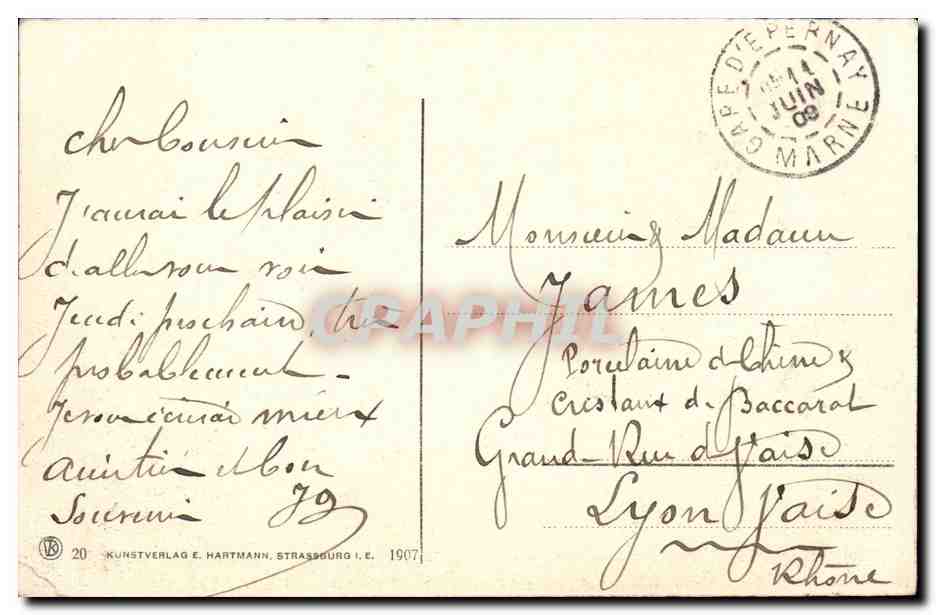 cher Cousin
J'aurai le plaisir
d'aller vous voir
Jeudi prochain, très
probablement -
Je vous écrirai mieux
Amitiés et bon
Souvenir JG
20 KUNSTVERLAG E. HARTMANN, STRASSBURG I. E. 1907
GARE D'EPERNAY
JUIN
09
MARNE
Monsieur & Madame
James
Porcelaine de Chine &
Cristaux de Baccarat
Grande Rue de Vaise
Lyon Vaise
Rhône
CPAPHIL